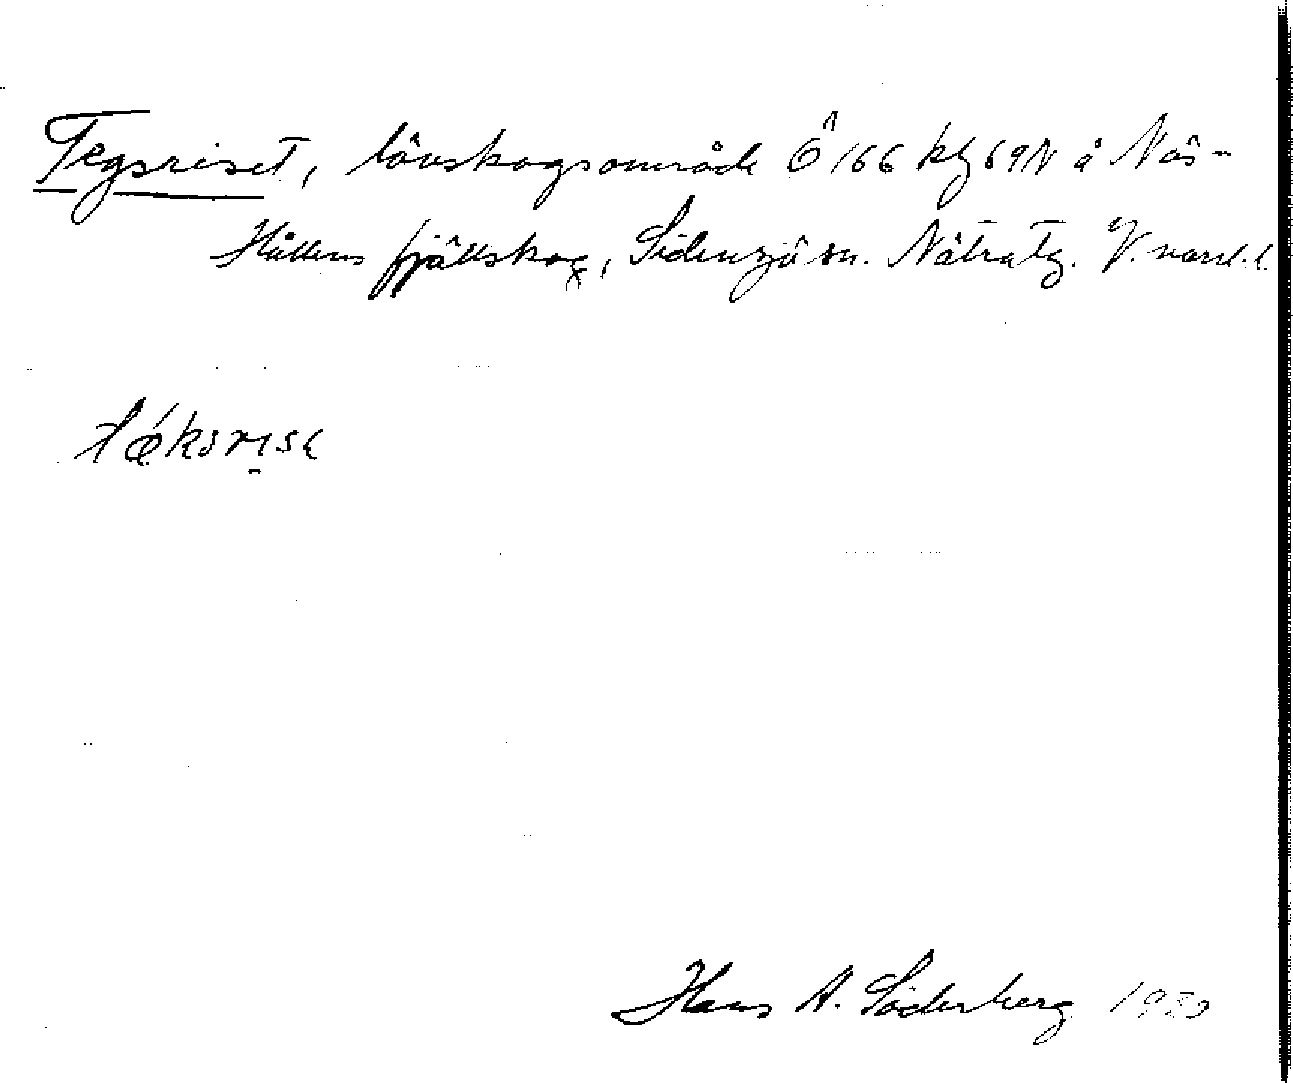 Tegsriset, lövskogsområde Ö 166 kbl 69N å Näs-
Hållens fjällskog, Sidensjö sn. Nätratg. V.
tǽksrise
Hans A. Söderberg 19